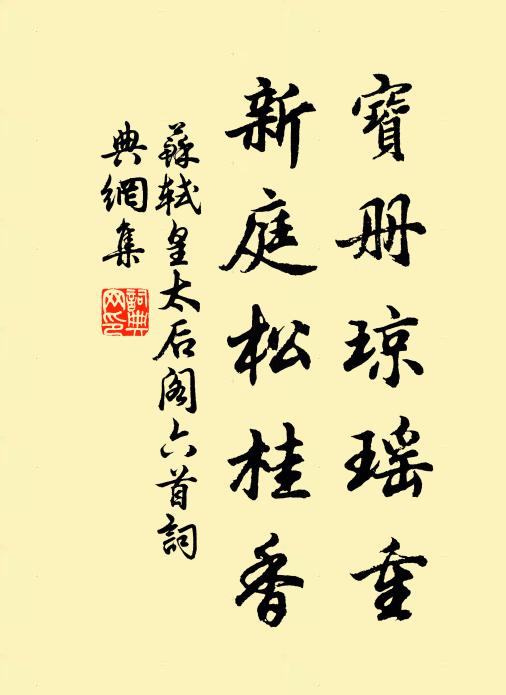 寶册琼瑶重
新庭松桂香
蘇軾皇太后阁六首詞
典網集
詞典
网印